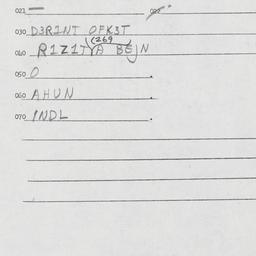 021 —
030 D3R1NT OFK3T
(269
060 R1Z1TYA BEJN
050 O .
060 AHUN .
070 INDL .